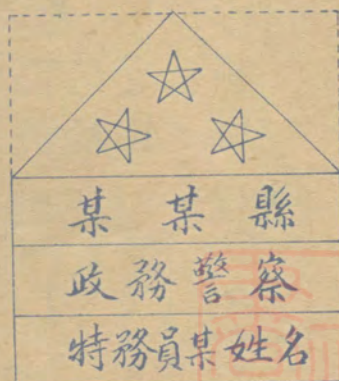 某某縣
政務警察
特務員某姓名